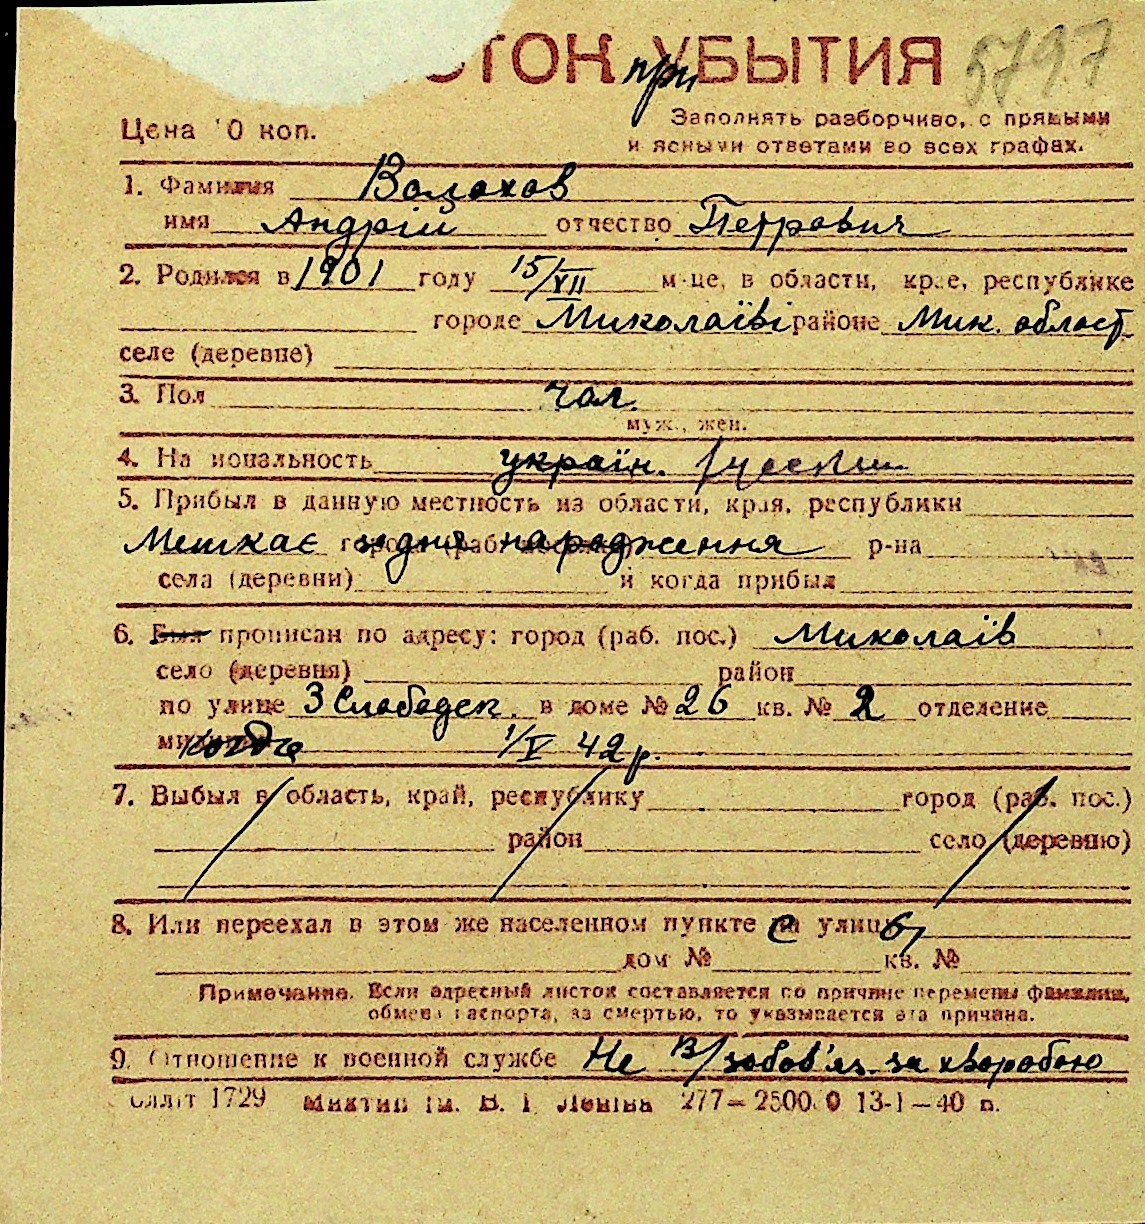 СТОК при УБЫТИЯ 5797
Цена 10 коп.
Заполнять разборчиво, с прямыми
и ясными ответами во всех графах.
1. Фамилия Волохов
имя Андрій отчество Петрович
2. Родился в 1901 году 15/VII м-це, в области, крае, республике
городе Миколаїві районе Мик. област.
селе (деревне)
3. Пол чол.
муж., жен.
4. Национальность україн. русский
5. Прибыл в данную местность из области, края, республики
Мешкає з дня народження р-на
села (деревни) и когда прибыл
6. Был прописан по адресу: город (раб. пос.) Миколаїв
село (деревня) район
по улице 3 Слободск. в доме № 26 кв. № 2 отделение
когда 1/V 42 р.
7. Выбыл в область, край, республику город (раб. пос.)
район село (деревню)
8. Или переехал в этом же населенном пункте с улицы
дом № кв. №
Примечание. Если адресный листок составляется по причине перемены фамилии,
обмена паспорта, за смертью, то указывается эта причина.
9. Отношение к военной службе Не в/зобов'яз. за хворобою
Облліт 1729 Миктип ім. В. І. Леніна 277—25000 13-1—40 р.